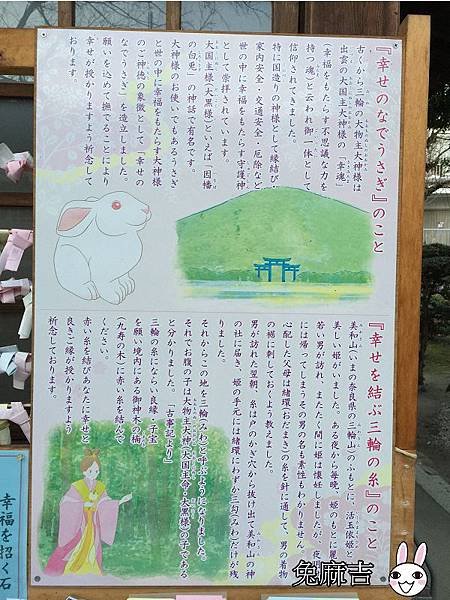 『幸せのなでうさぎ』のこと
古くから三輪の大物主大神様は
出雲の大国主大神様の「幸魂」
(幸福をもたらす不思議な力を
持つ魂)と云われ御一体として
信仰されてきました。
特に国造りの神様として縁結び・
家内安全・交通安全・厄除など
世の中に幸福をもたらす守護神
として崇拝されています。
大国主様(大黒様)といえば「因幡
の白兎」の神話で有名です。
大神様のお使いでもあるうさぎ
と世の中に幸福をもたらす大神様
のご神徳の象徴として「幸せの
なでうさぎ」を造立しました。
願いを込めて撫でることにより
幸せが授かりますよう祈念して
おります。
『幸せを結ぶ三輪の糸』のこと
美和山(いまの奈良県の三輪山)のふもとに、活玉依姫と
美しい姫がいました。ある夜から毎晩、姫のもとに麗
若い男が訪れ、またたく間に姫は懐妊しましたが、夜
には帰ってしまうその男の名も素性もわかりません
心配した父母は緒環(おだまき)の糸を針に通して、男の着物
の裾に刺しておくよう教えました。
男が訪れた翌朝、糸は戸のかぎ穴から抜け出て美和山の神
の社に届き、姫の手元には緒環にわずか三勾(みわ)だけが残
りました。
それからこの地を三輪(みわ)と呼ぶようになりました。
それでお腹の子は大物主大神(大国主命・大黒様)の子である
と分かりました。(古事記より)
三輪の糸にならい良縁・子宝
を願い境内にある御神木の楠
(九寿の木)に赤い糸を結んで
ください。
赤い糸を結びあなたに幸せと
良きご縁が授かりますよう
祈念しております。
幸福を招く石
兔麻吉